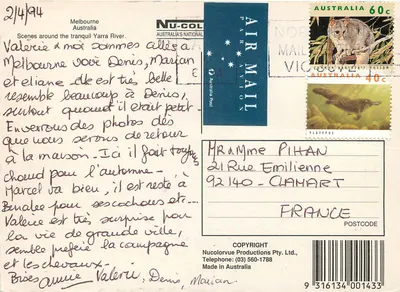 2/4/94
Melbourne
Australia
Scenes around the tranquil Yarra River.
NU-COLOR
AUSTRALIA'S NATIONAL
Valérie & moi sommes allées à
Melbourne voir Denis, Marian
et eliane. Elle est très belle
ressemble beaucoup à Denis,
surtout quand il était petit.
Enverrons des photos dès
que nous serons de retour
à la maison. Ici il fait toujours
chaud pour l'automne.
Marcel va bien, il est resté à
pour ses cochons etc...
Valérie est très surprise pour
la vie de grande ville,
semble préférer la campagne
et les chevaux.
Bises annie Valérie, Denis, Marian
AIR MAIL
PAR AVION
Australia Post
MAIL
VIC
AUSTRALIA 60c
AUSTRALIA
40c
PLATYPUS
MR & MME PIHAN
21 RUE Emilienne
92140 - CLAMART
FRANCE
POSTCODE
COPYRIGHT
Nucolorvue Productions Pty. Ltd.,
Telephone: (03) 560-1788
Made in Australia
9 316134 001433